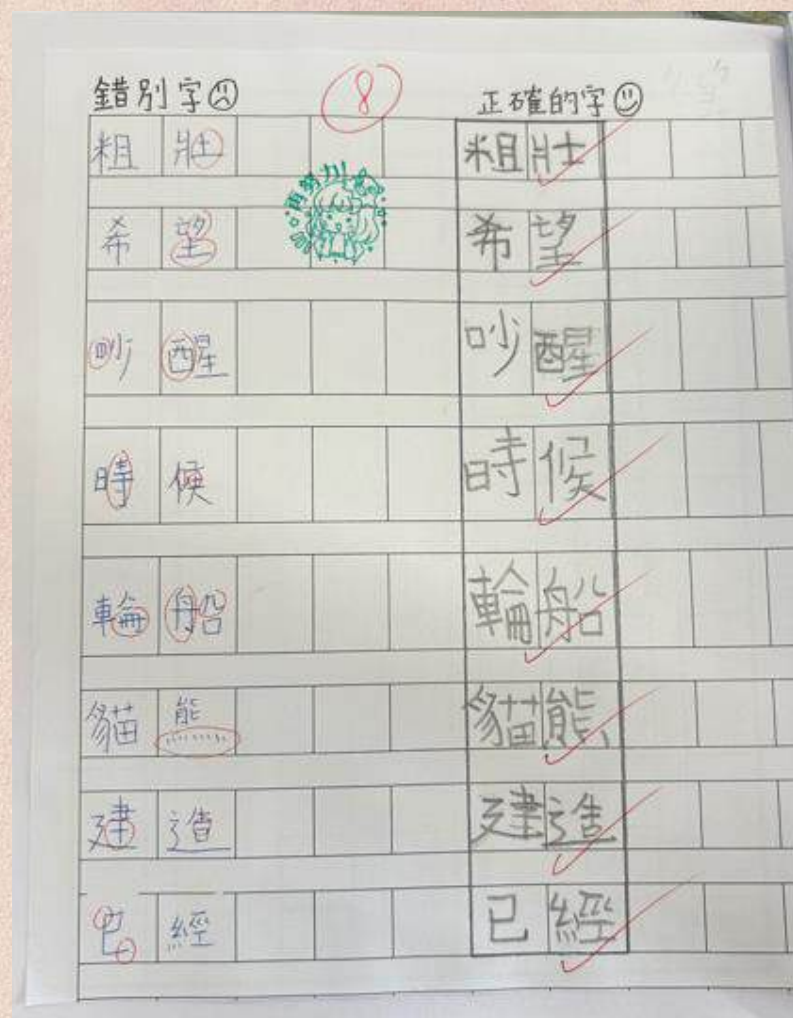 錯別字☹ 8 正確的字☺
再努力!
粗壯 粗壯
希望 希望
吵醒 吵醒
時候 時候
輪船 輪船
貓熊 貓熊
建造 建造
已經 已經